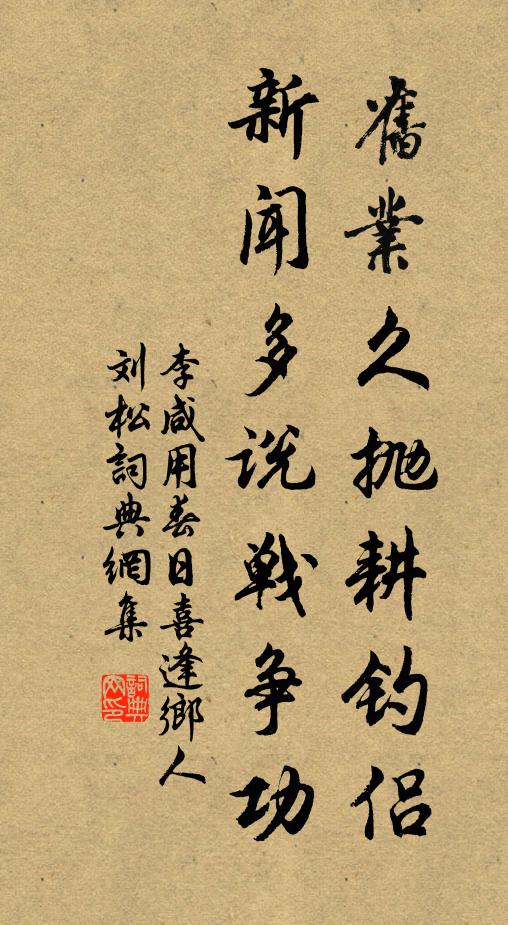 舊業久抛耕钓侣
新闻多说戰争功
李咸用春日喜逢鄉人
刘松詞典網集
詞典